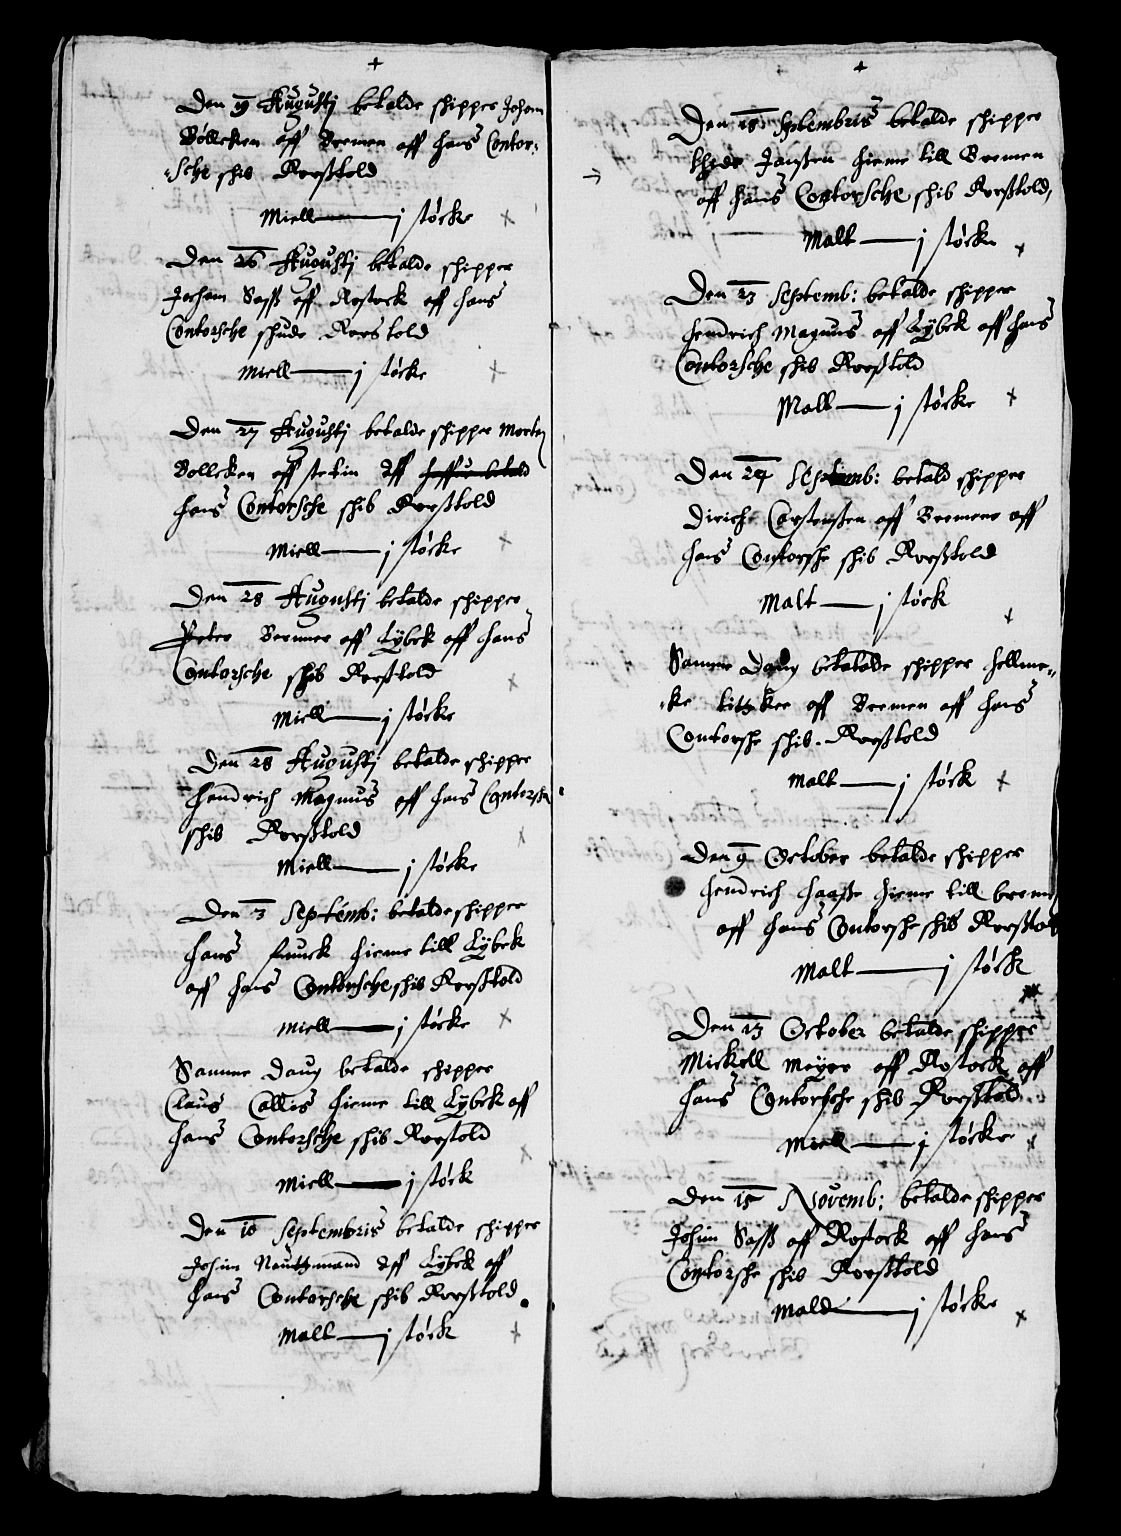 +
Den 19 Augustj betalde skipper Johann
Bölleken aff Bremen aff hans Contor-
-sche skib Rorßtold
Miell — j støcke +
Den 26 Augustj betalde skipper
Jochem Saß aff Rostock aff hans
Contorsche skude Rorstold
Miell — j støcke +
Den 27 Augustj betalde skipper Morten
Bolleken aff stetin Aff
hans Contorsche skib Rorßtold
Miell — j støcke +
Den 28 Augustj betalde skipper
Peter Bremer aff Lÿbek aff hans
Contorsche skib Rorßtold
Miell — j støcke +
Den 28 Augustj betalde skipper
Hendrich Magnus aff hans Contorsche
skib Rorßtold
Miell — j støcke +
Den 3 Septemb: betalde skipper
Hans Funck hieme till Lÿbek
aff hans Contorsche skib Rorßtold
Miell — j støcke +
Samme Daug betalde skipper
Claus Callis hieme till Lÿbek aff
hans Contorsche skib Rorstold
Miell — j støck +
Den 10 Septembris betalde skipper
Johim Nautzmand Aff Lÿbek aff
hans Contorsche skib Rorßtold
Malt — j støck +
+
Den 18 Septembris betalde skipper
Janßen hieme till Bremen
aff hans Contorsche skib Rorßtold
Malt — j støcke +
Den 23 Septemb: betalde skipper
Hendrich Magnus aff Lÿbek aff hans
Contorsche skib Rorßtold
Malt — j støcke +
Den 29 Septemb: betald skipper
Dirich Carstenßen aff Bremen aff
hans Contorsche skib Rorßtold
Malt — j støck +
Samme Daug betalde skipper Hellme-
-ke Litzker aff Bremen aff hans
Contorsche skib Rorßtold
Malt — j støck +
Den 9 October betalde skipper
Hendrich Haaße hieme till Bremen
aff hans Contorsche skib Rorßtold
Malt — j støck
Den 13 October betalde skipper
Mickell Meyer aff Rostock aff
hans Contorsche skib Rorßtold
Miell — j støcke +
Den 15 Novemb: betalde skipper
Johim Saß aff Rostock aff hans
Contorsche skib Rorßtold
Mald — j støcke +